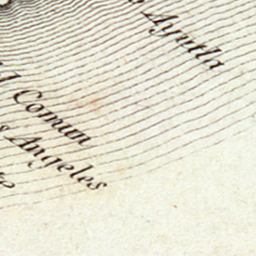 Ayutla
l Comun
s Angeles